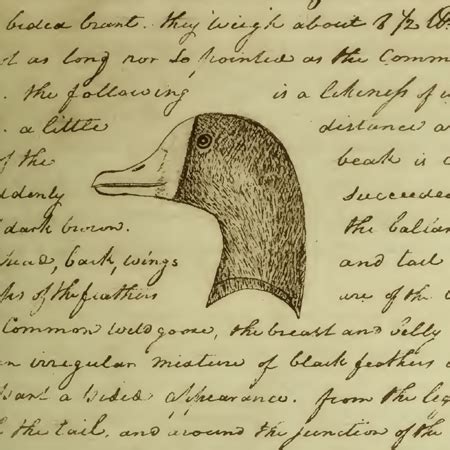 bided brant. they weigh about 8 1/2
as long nor so pointed as the Comm
. the following is a likeness of
. a little distance a
of the beak is c
ddenly succeeded
dark brown. the balian
head, back, wings and tail
of the feathers are of the
Common wild goose, the breast and belly
an irregular mixture of black feathers
a bided appearance. from the leg
the tail, and around the junction of the